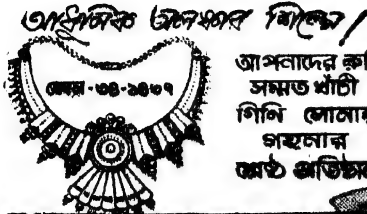 আধুনিক অলঙ্কার শিল্পে!
ফোন - ৩৪-১৪৩৭
আপনাদের রুচি
সম্মত খাঁটী
গিনি সোনার
গহনার
শ্রেষ্ঠ প্রতিষ্ঠান